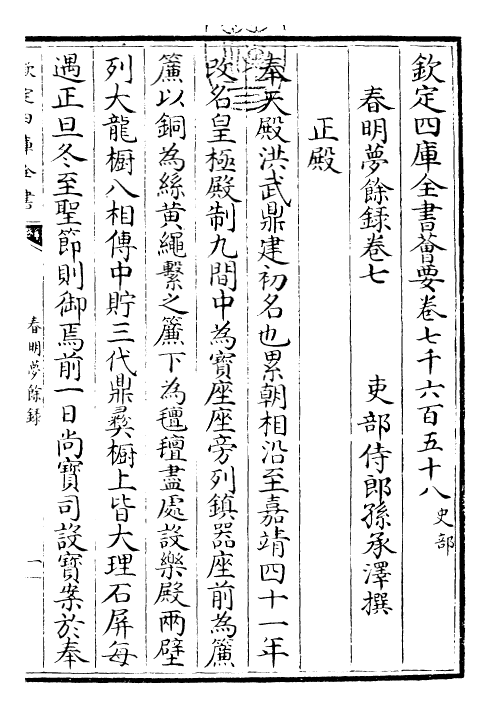 欽定四庫全書薈要卷七千六百五十八 史部
春明夢餘録卷七
吏部侍郎孫承澤撰
正殿
奉天殿洪武鼎建初名也累朝相沿至嘉靖四十一年
改名皇極殿制九間中為寶座座旁列鎮器座前為簾
簾以銅為絲黄繩繫之簾下為氊氊盡處設樂殿兩壁
列大龍櫥八相傳中貯三代鼎彞櫥上皆大理石屏每
遇正旦冬至聖節則御焉前一日尚寶司設寶案於奉
欽定四庫全書
春明夢餘録
一